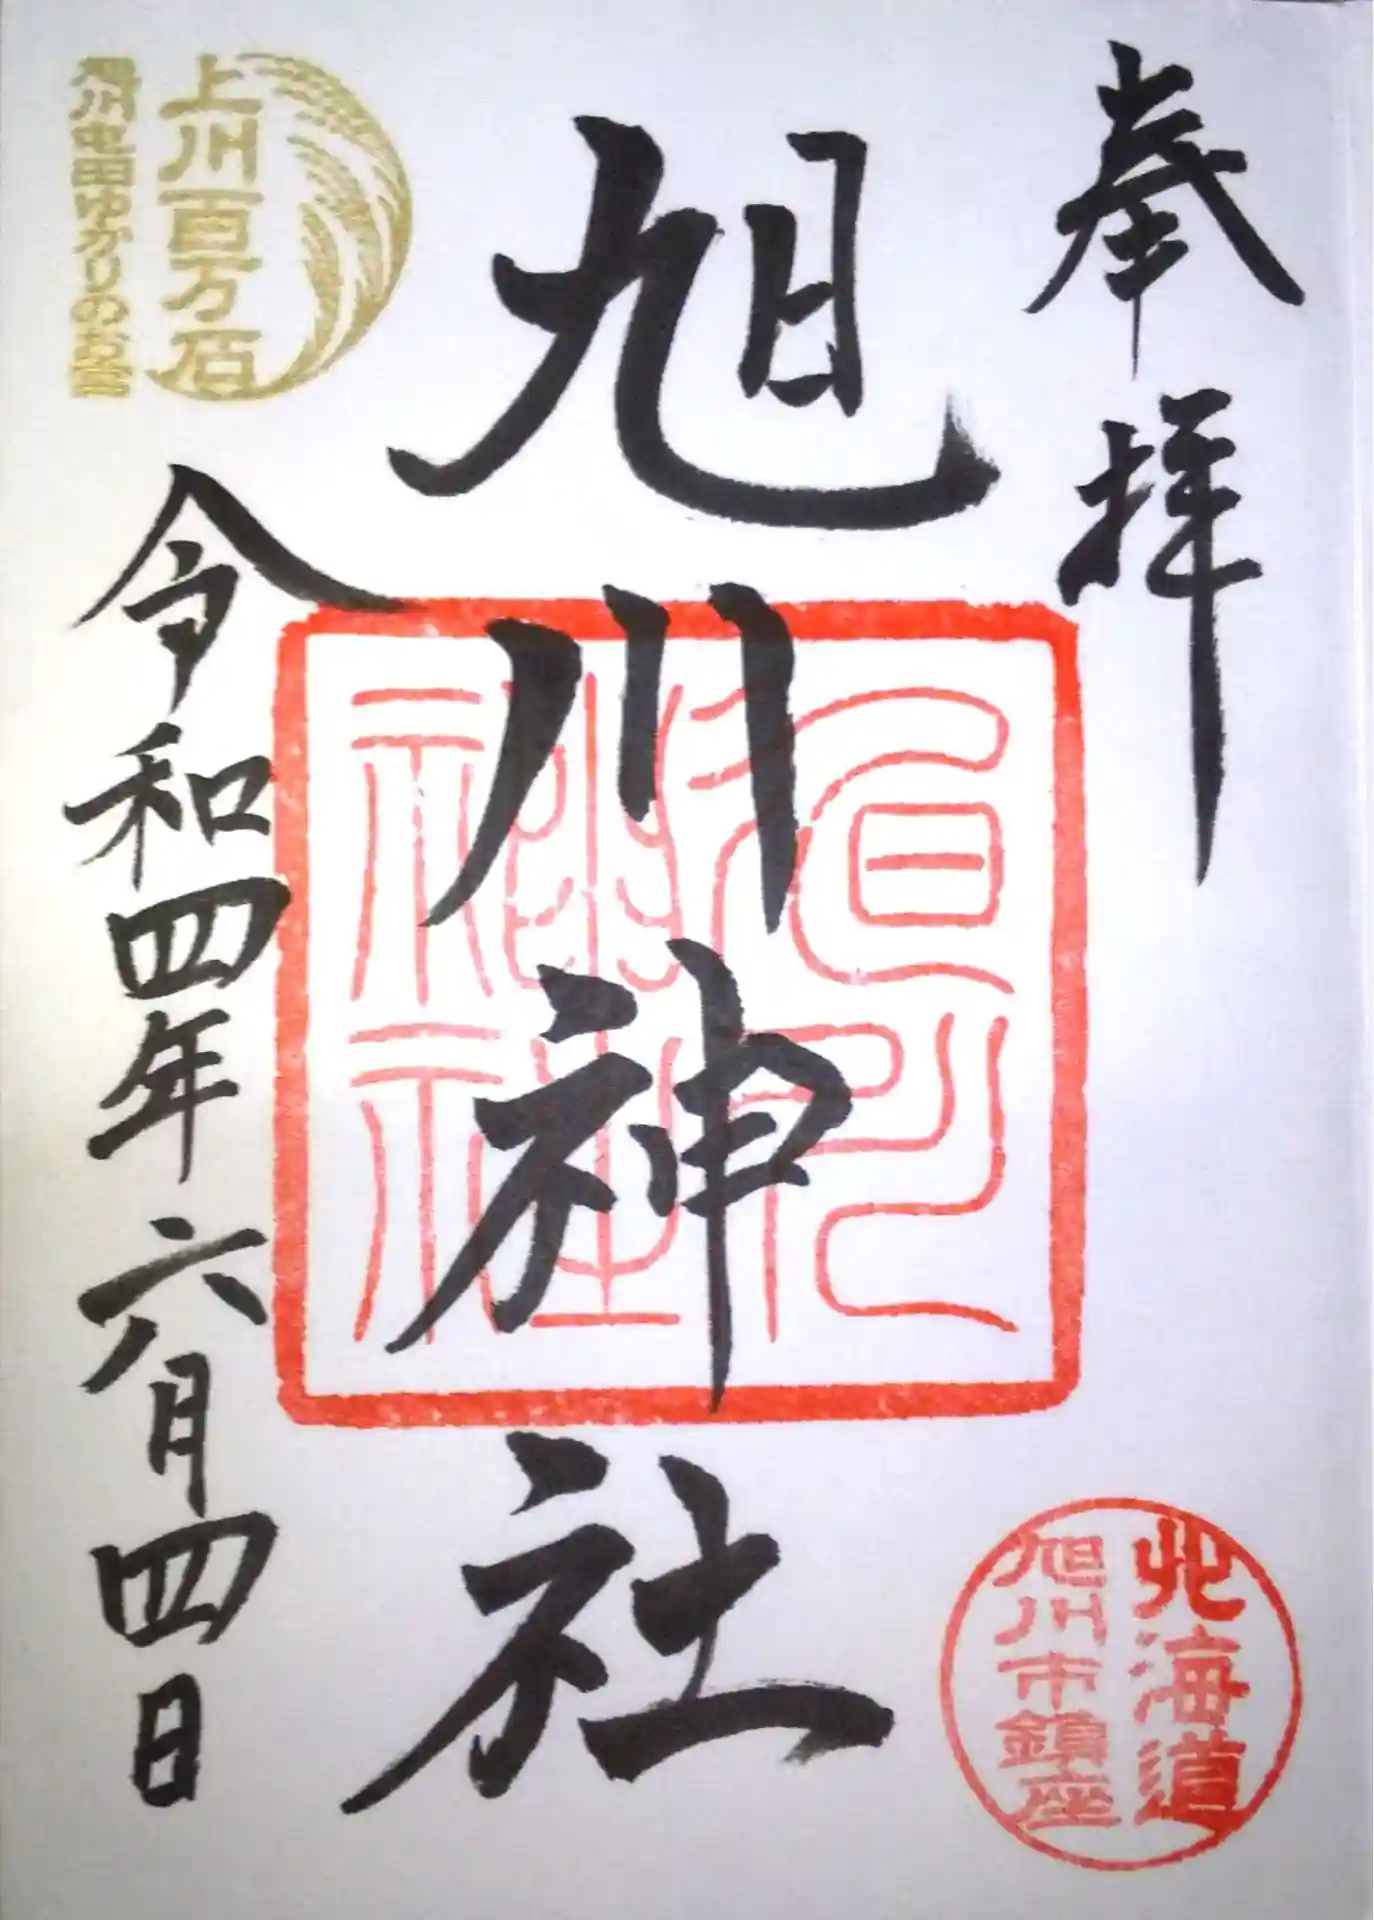 奉拝
北海道
旭川市鎮座
旭川神社
旭川神社
上川百万石
旭川屯田ゆかりのお宮
令和四年六月四日